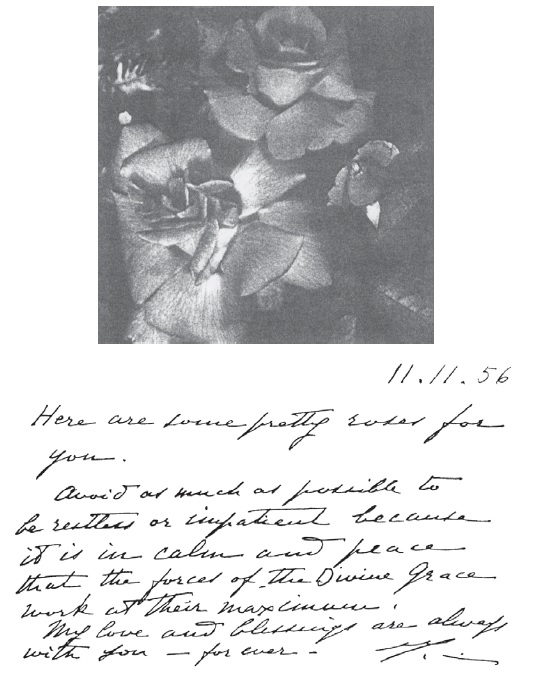 11.11.56
Here are some pretty roses for
you.
Avoid as much as possible to
be restless or impatient because
it is in calm and peace
that the forces of the Divine Grace
work at their maximum.
My love and blessings are always
with you – for ever –